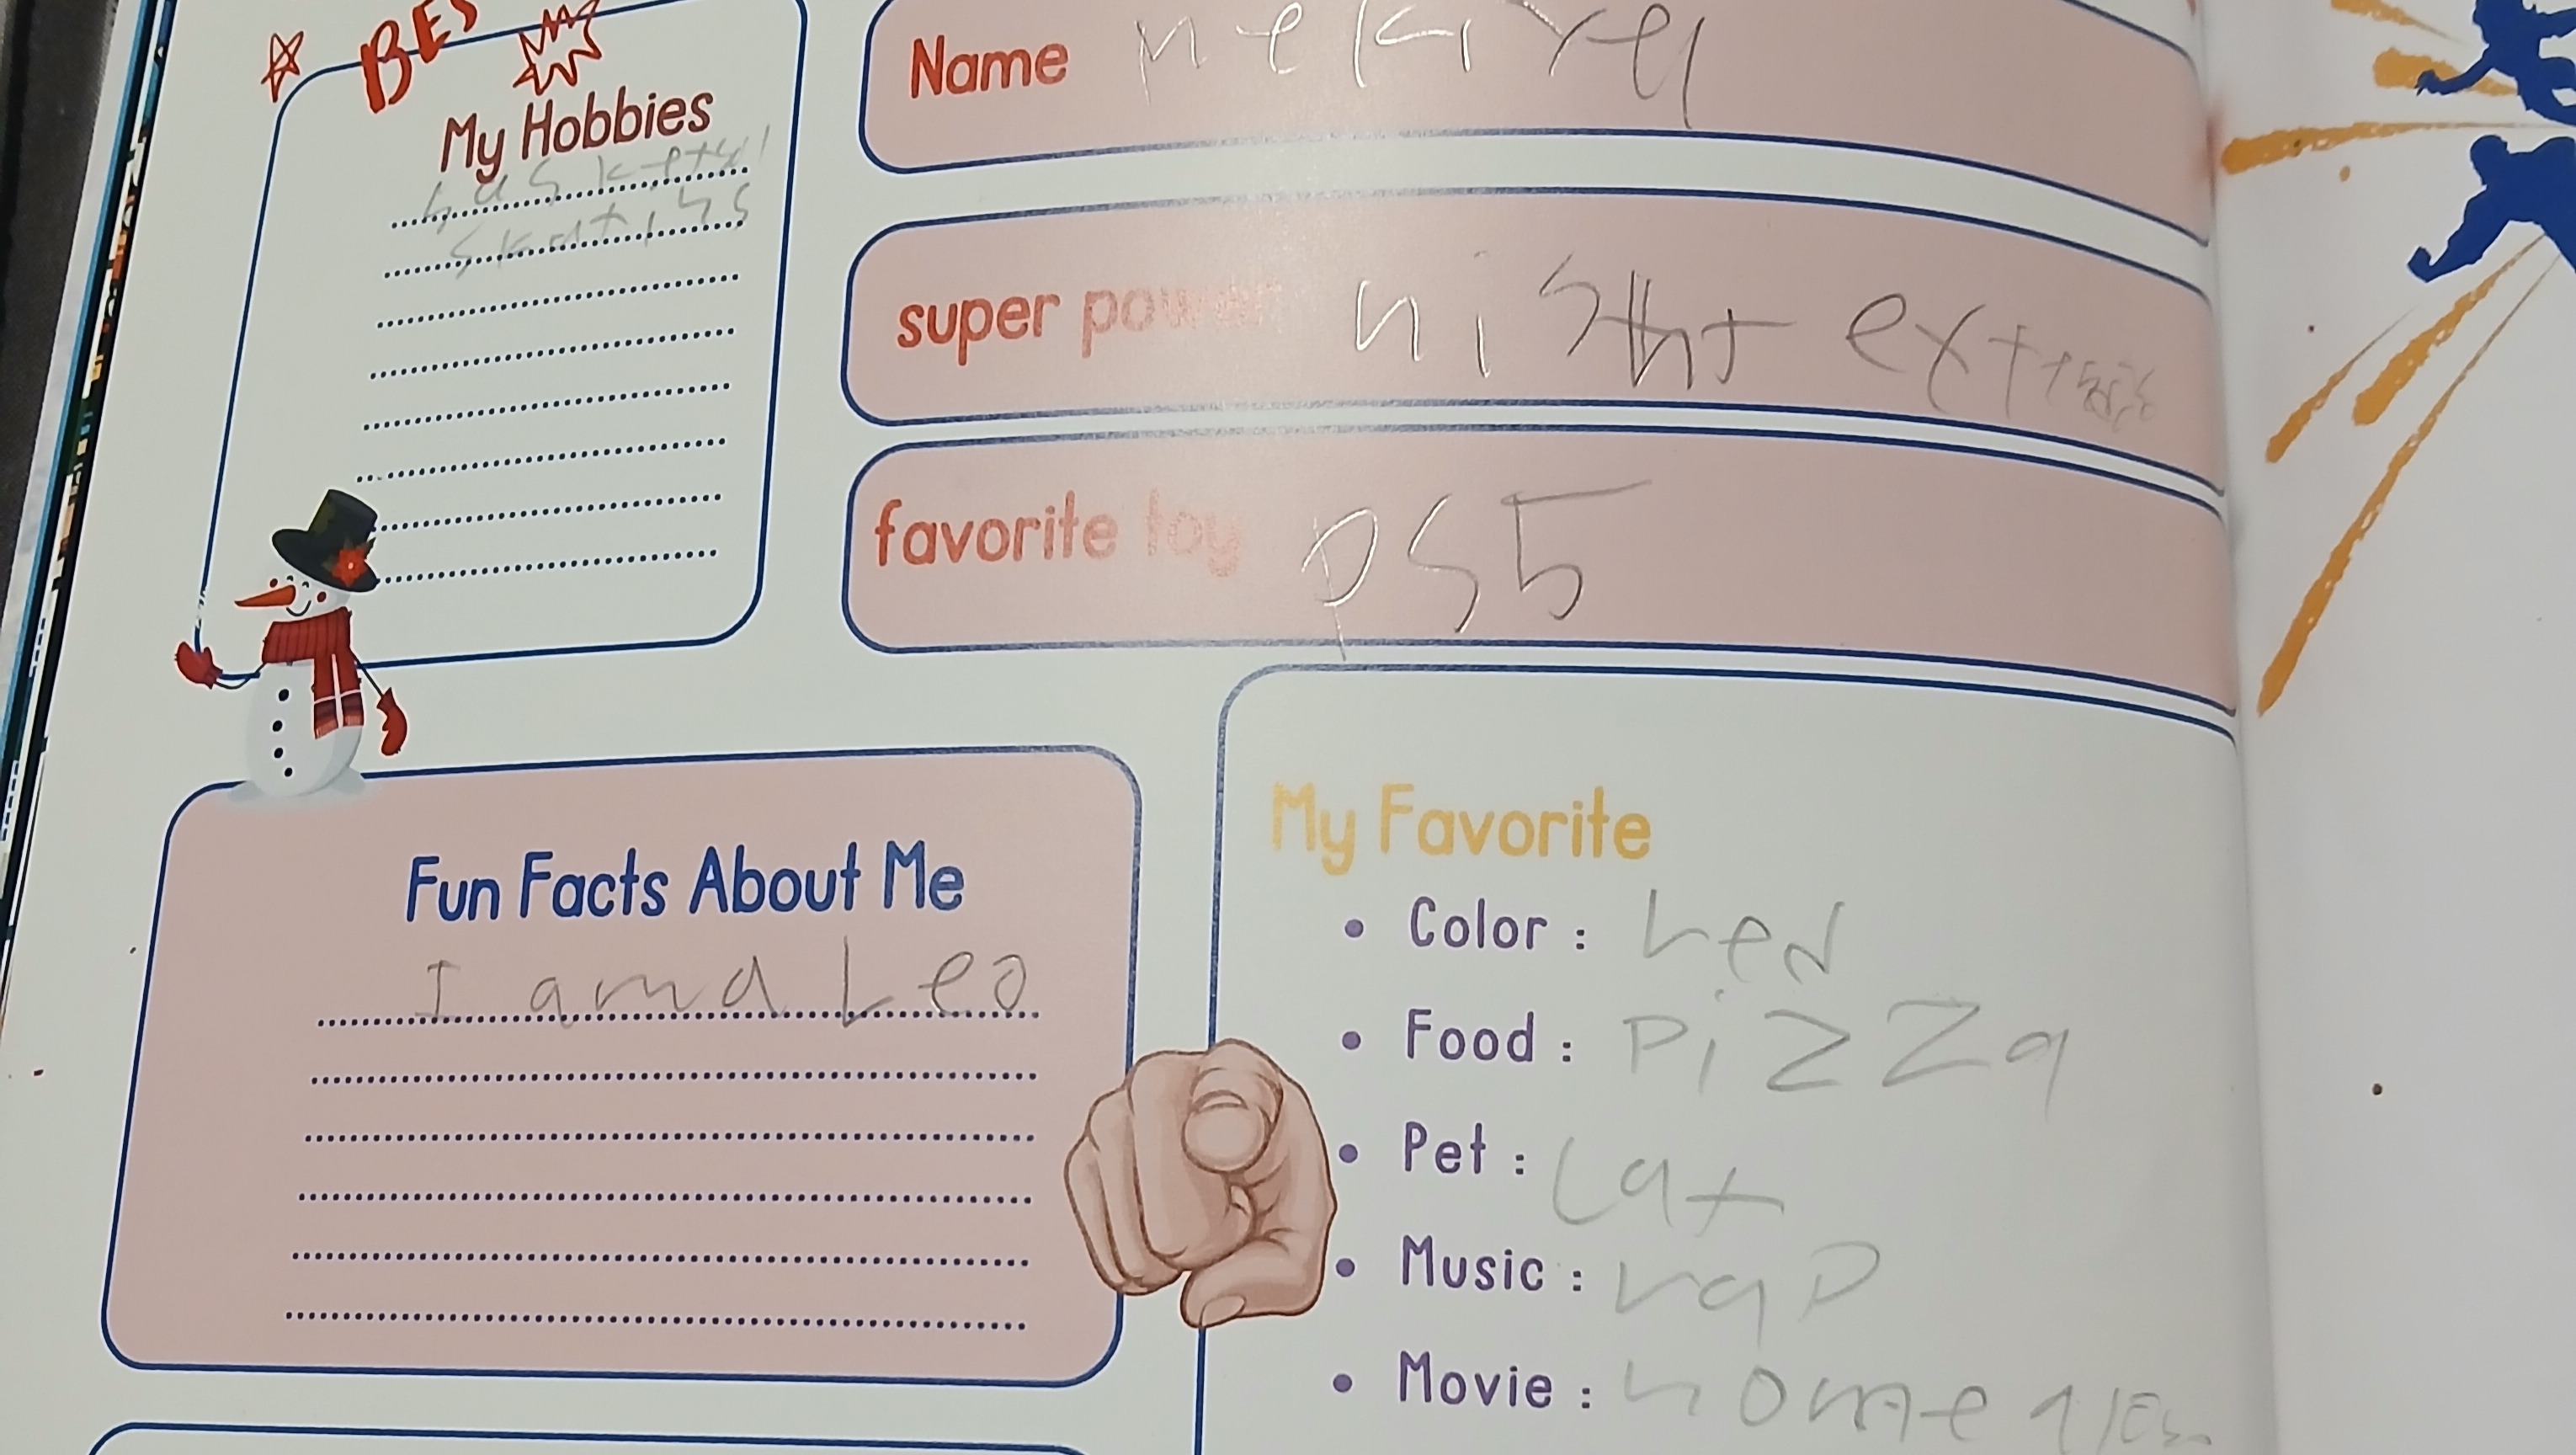 BES
My Hobbies
skatihs
Name
super power night
favorite toy ps5
Fun Facts About Me
I am a Leo
My Favorite
• Color : red
• Food : PiZZa
• Pet : Cat
• Music : rap
• Movie : home